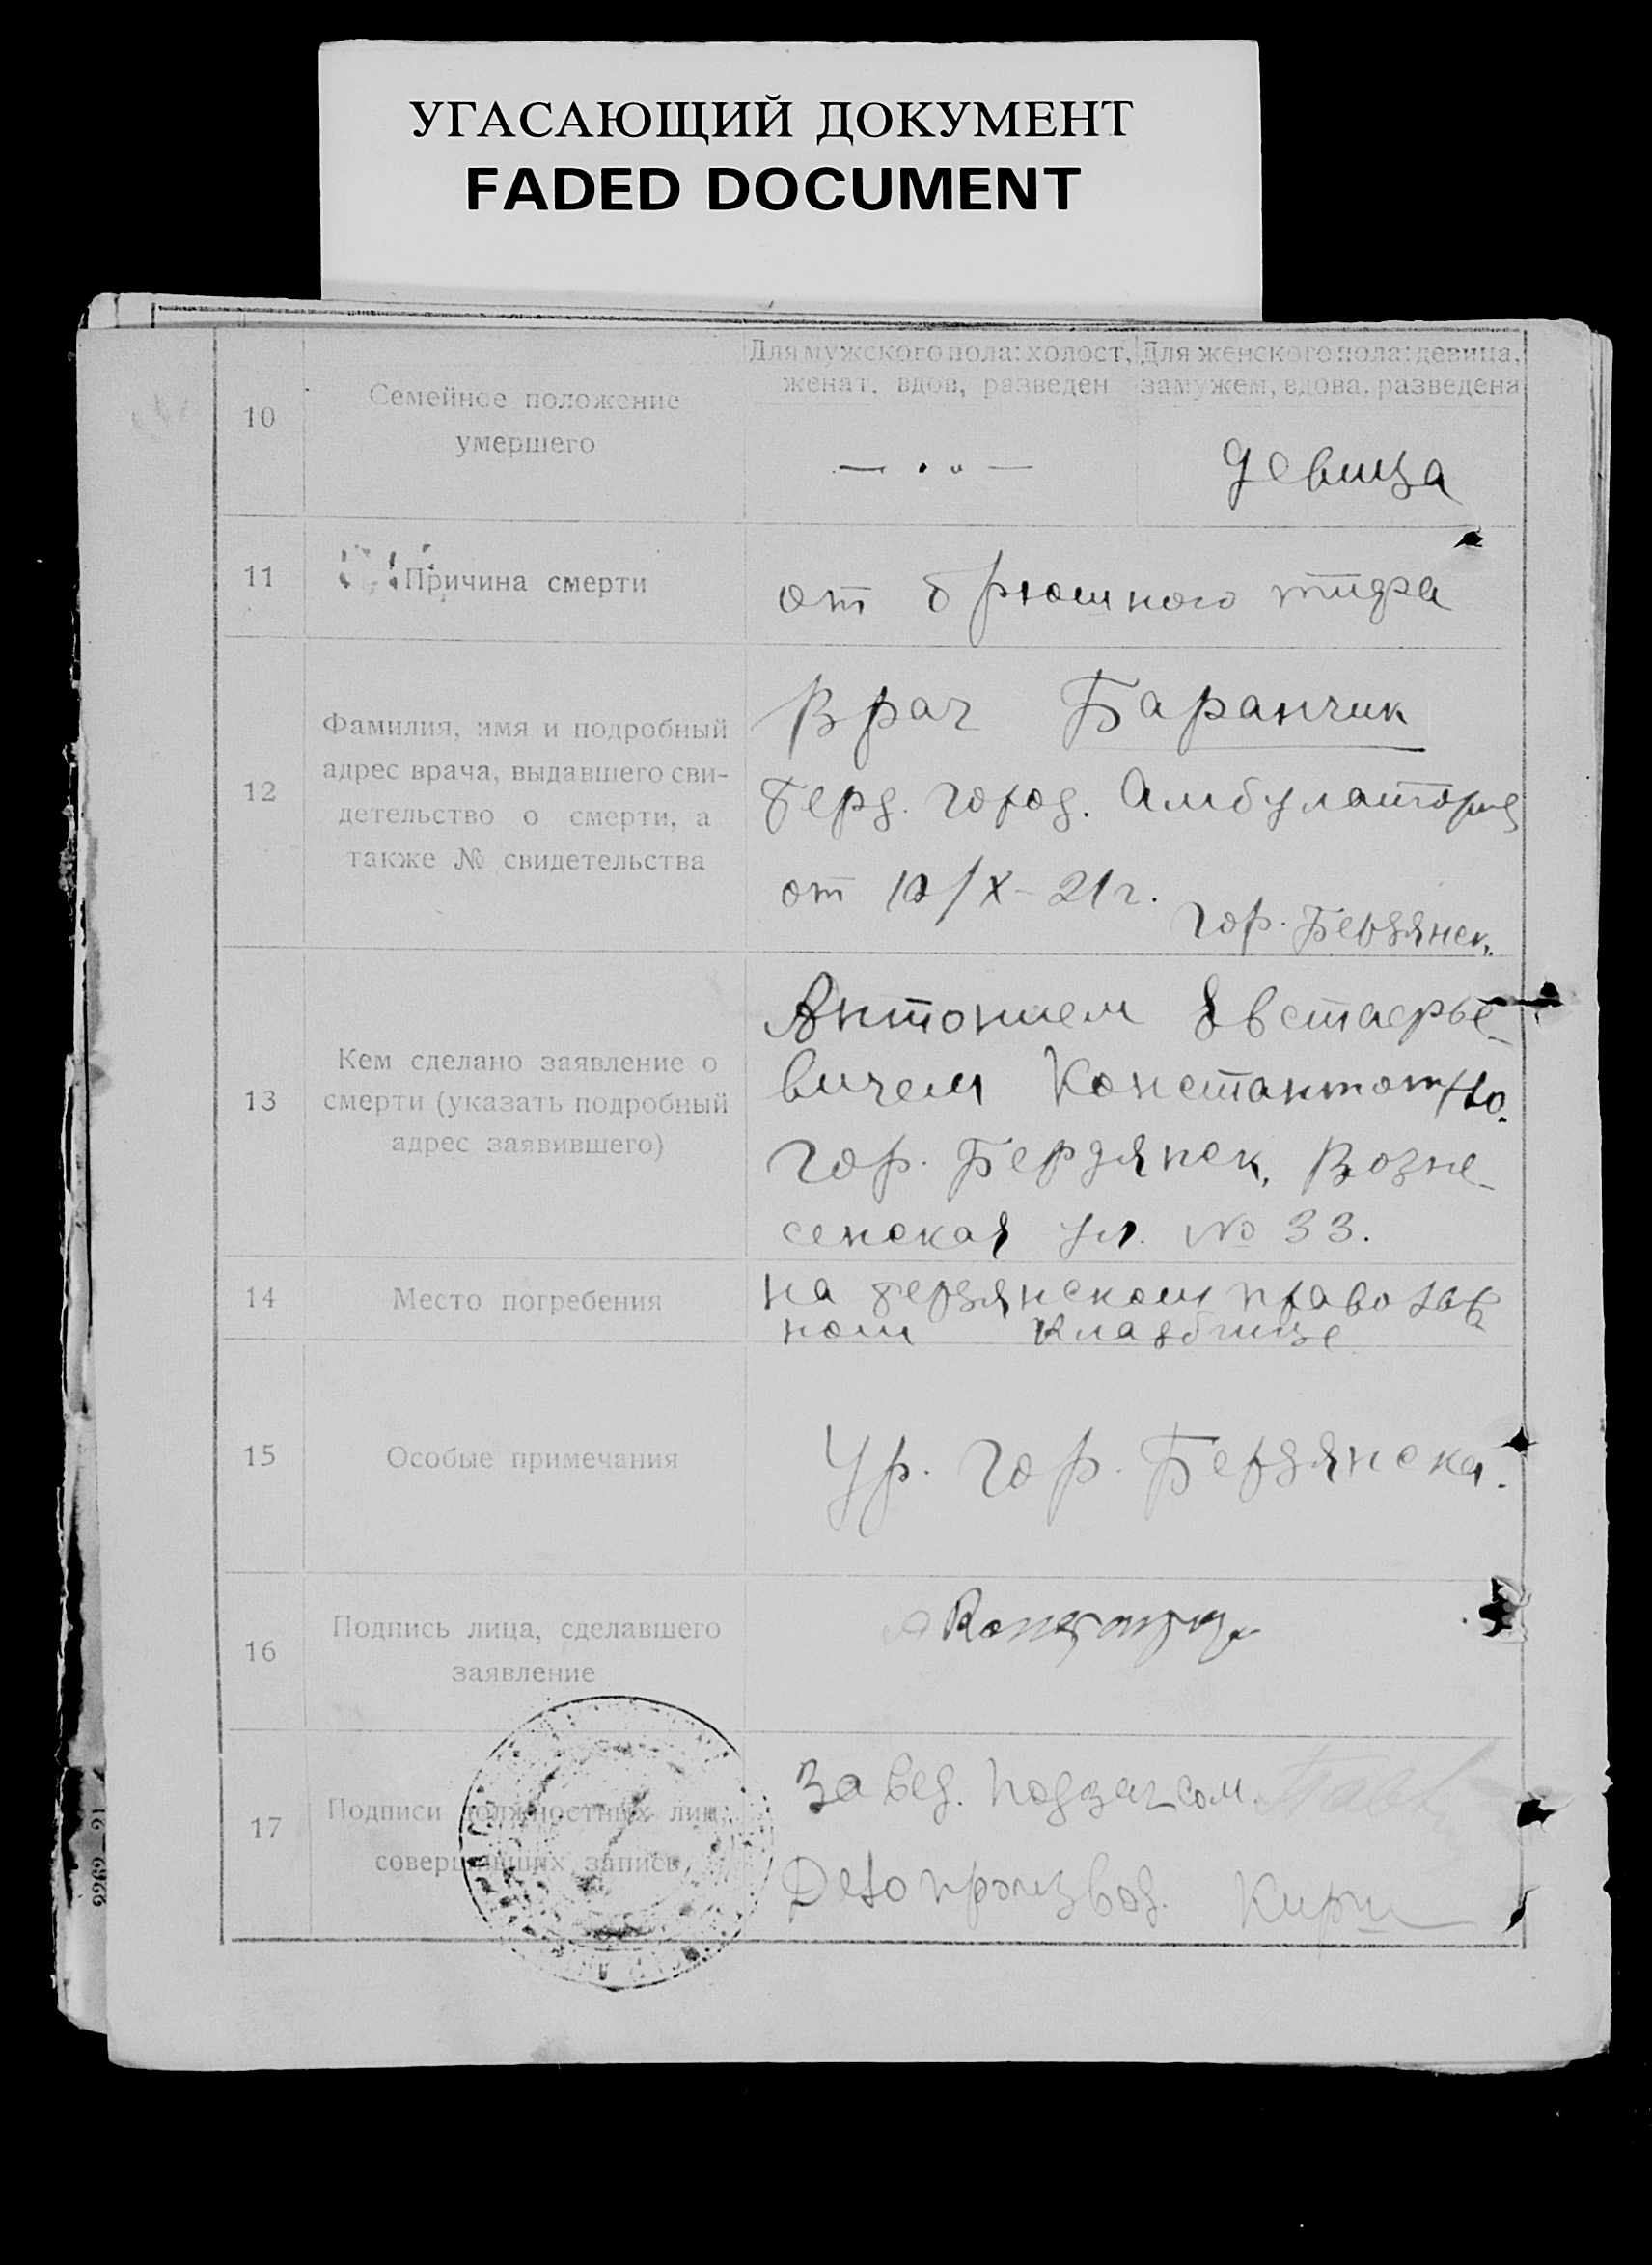 УГАСАЮЩИЙ ДОКУМЕНТ
FADED DOCUMENT
Для мужского пола: холост,
женат, вдов, разведен
Для женского пола: девица,
замужем, вдова, разведена
10
Семейное положение
умершего
— . „ —
девица
11
Причина смерти
от брюшного тифа
12
Фамилия, имя и подробный
адрес врача, выдавшего сви-
детельство о смерти, а
также № свидетельства
Врач Баранчик
берд. город. Амбулатория
от 10/X-21г.
гор. Бердянск.
13
Кем сделано заявление о
смерти (указать подробный
адрес заявившего)
Антонием Евстафье-
вичем
гор. Бердянск, Возне-
сенская ул. № 33.
14
Место погребения
на бердянском православ-
ном кладбище
15
Особые примечания
Ур. гор. Бердянска.
16
Подпись лица, сделавшего
заявление
17
Подписи должностных лиц,
совершивших запись
Завед. подзагсом.
Делопроизвод.
2262 21